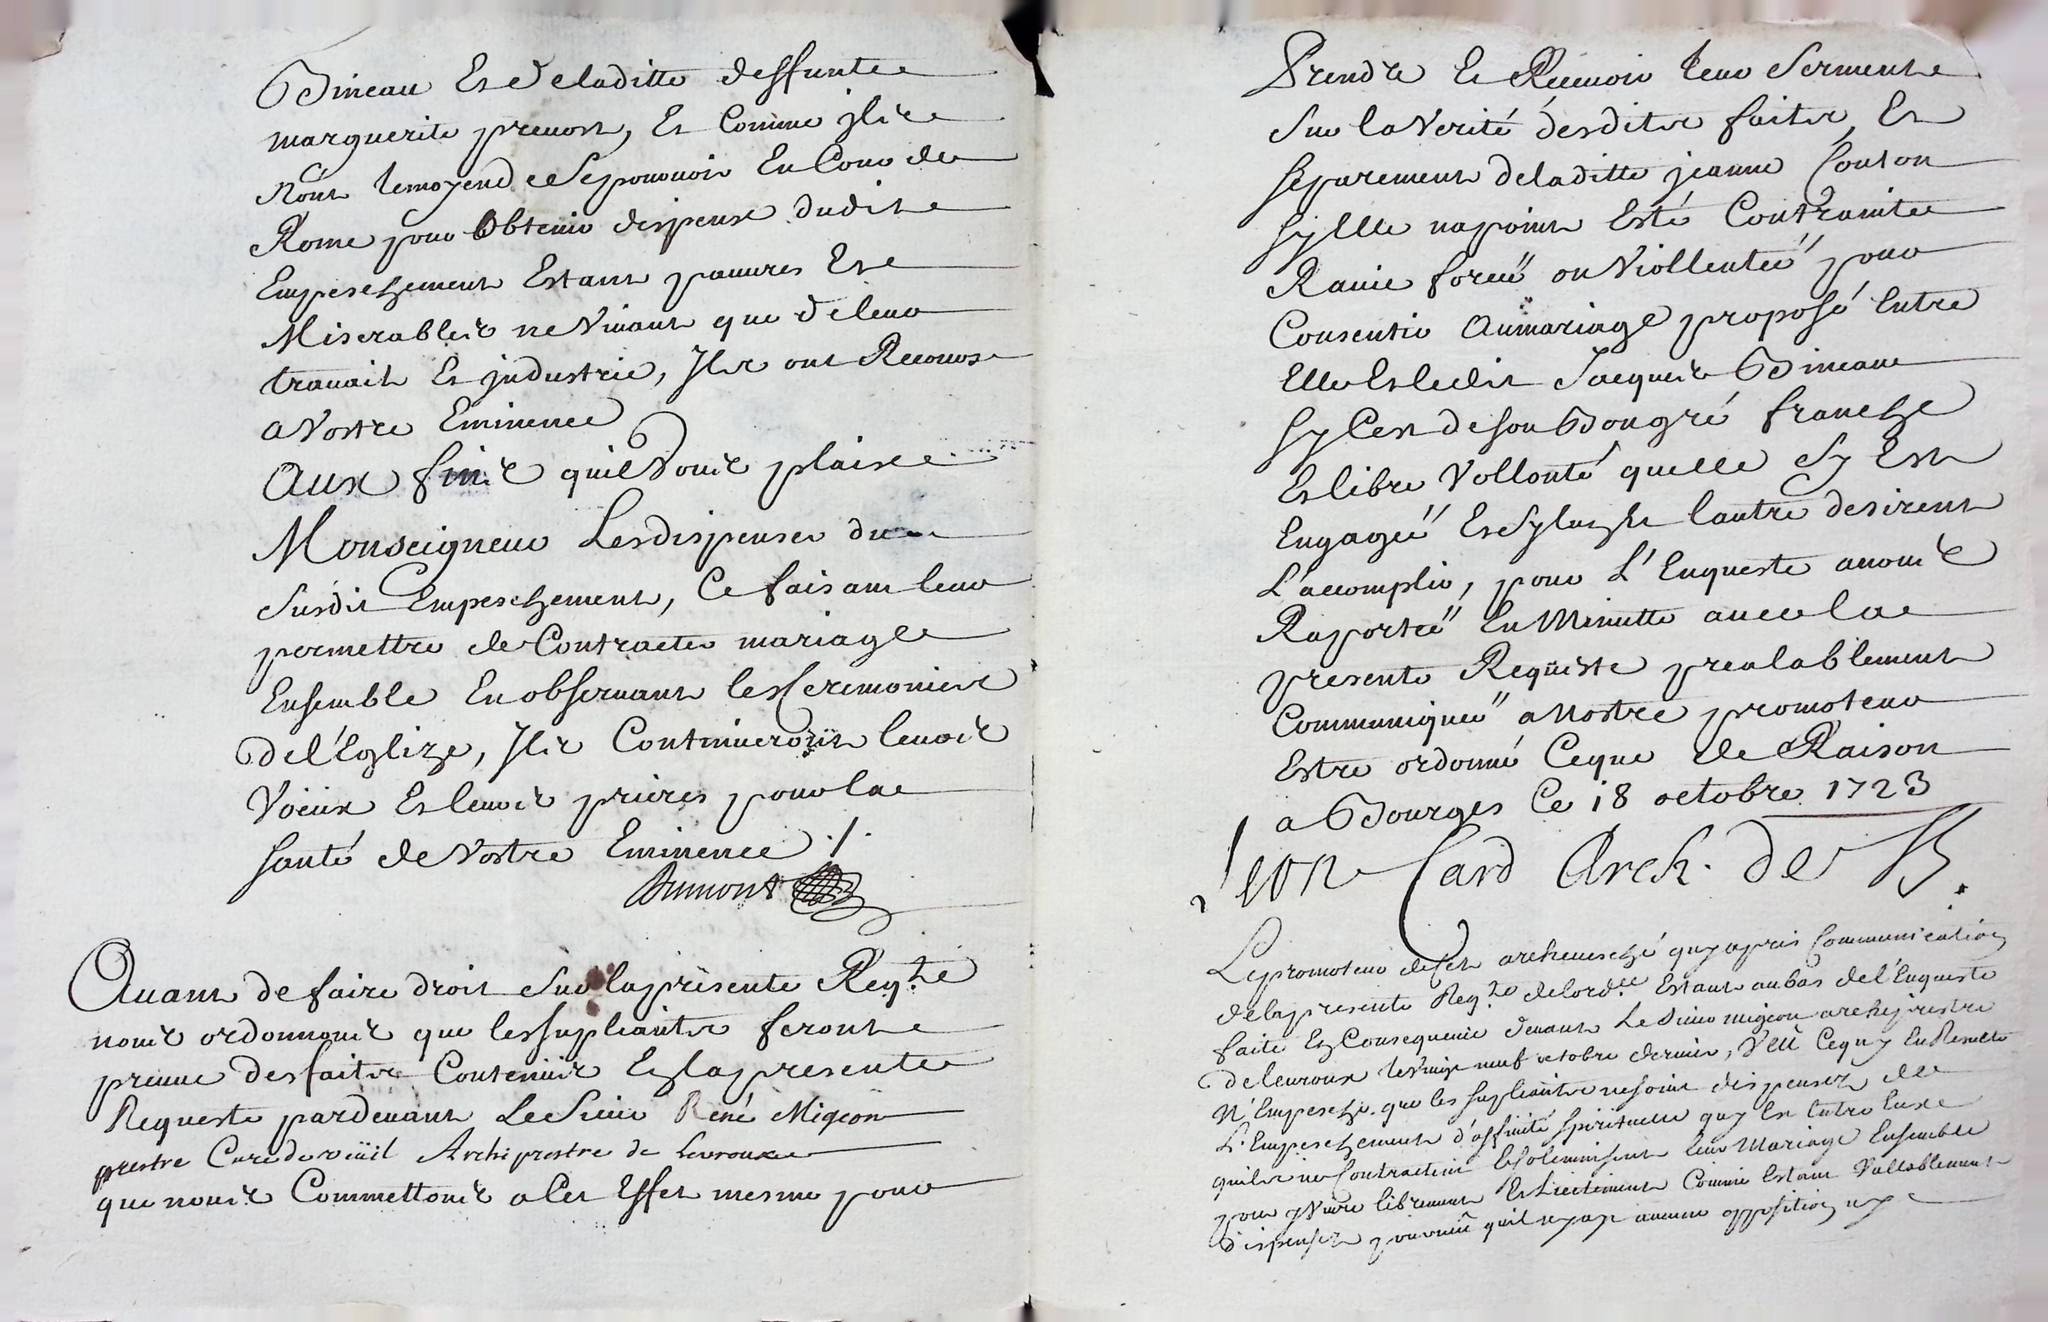 Bineau Et de laditte deffunte
marguerite preuost, Et Comme ils
nont le moyen de se pouruoir En Cour de
Rome pour obtenir dispense dudit
Empeschement Estant pauures Et
Miserables ne Viuant que de leur
trauail Et industrie, Ils ont Recours
a Vostre Eminence
Aux fins quil Vous plaise
Monseigneur Les dispenser du
susdit Empeschement, Ce faisant leur
permettre de Contracter mariage
Ensemble En obseruant les Ceremonies
de l'Eglize, Ils Continueront leurs
Voeux Et leurs prieres pour la
santé de Vostre Eminence ./.
Dumont
Auant de faire droit Sur la presente Reqte
nous ordonnons que les supliants feront
preuue des faits Contenus En la presente
Requeste pardeuant Le Sieur René Migeon
prestre Curé de vëuil Archiprestre de Levroux
que nous Commettons a Cet Effet mesme pour
Prendre Et Receuoir leur Serment
Sur la Verité desdits faits, Et
separement de laditte jeanne Couton
sy Elle na point Esté Contrainte
Rauie forcée ou Viollentée pour
Consentir Au mariage proposé Entre
Elle Et ledit Jacques Bineau
sy Cest de son Bon gré franche
Et libre Vollonté quelle sy Est
Engagée Et sy lun Et lautre desirent
L'accomplir, pour L'Enqueste a nous
Raportée En Minutte auec la
presente Requeste prealablement
Communiquée a Nostre promoteur
Estre ordonné Ce que de Raison
a Bourges Ce 18 octobre 1723
Leon Card Arch. de B.
Le promoteur de Cet archeuesché quy a pris Communication
de la presente Reqte de lordce Estant au bas de l'Enqueste
faite En Consequence deuant Le Sieur migeon archiprestre
de leuroux le Vingt neuf octobre dernier, Veu Ce quy En Resulte
N'Empesche que les supliants ne soient dispensez de
L'Empeschement d'affinité spirituelle quy Est Entre Eux
quils ne Contractent Et solemnisent leur Mariage Ensemble
pour y Viure librement Et Licitement Comme Estant Vallablement
dispensez pourueu quil ny ayt aucune opposition ny